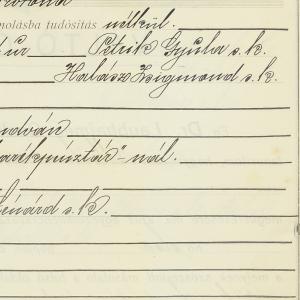 molásba tudósítás nélkül.
úr Petrik Gyula s. k.
Halász Zsigmond s. k.
takarékpénztár"-nál.
Lénárd s. k.